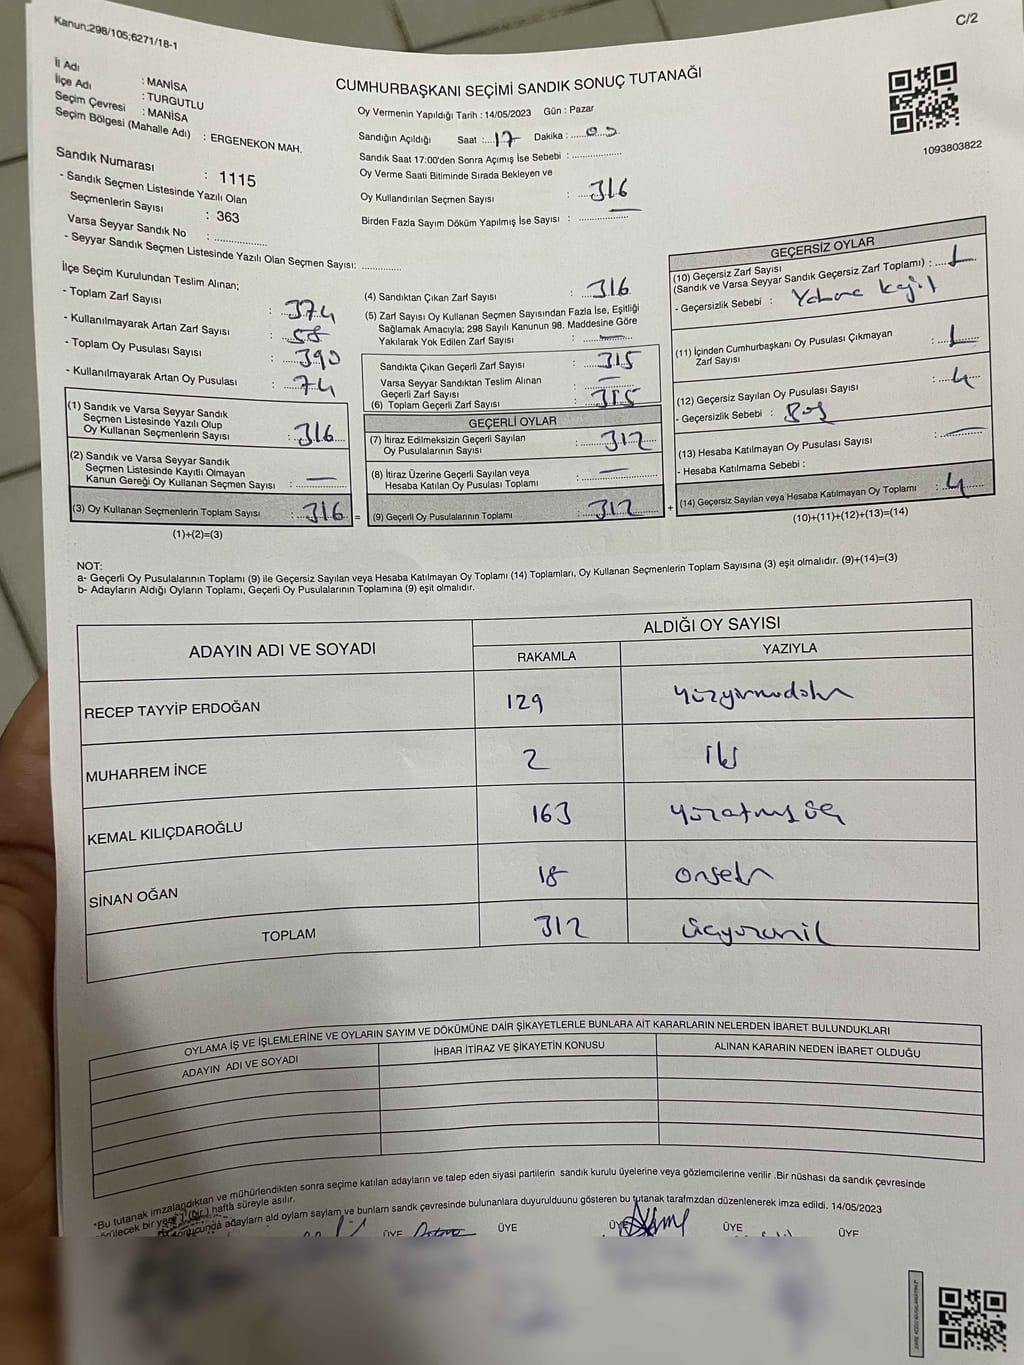 Kanun;298/105;6271/18-1
C/2
İl Adı : MANİSA
İlçe Adı : TURGUTLU
Seçim Çevresi : MANİSA
Seçim Bölgesi (Mahalle Adı) : ERGENEKON MAH.
CUMHURBAŞKANI SEÇİMİ SANDIK SONUÇ TUTANAĞI
Oy Vermenin Yapıldığı Tarih : 14/05/2023 Gün : Pazar
Sandığın Açıldığı Saat :....17 Dakika :......00
Sandık Saat 17:00'den Sonra Açımış İse Sebebi : ..................
Oy Verme Saati Bitiminde Sırada Bekleyen ve
Oy Kullandırılan Seçmen Sayısı : 316
Birden Fazla Sayım Döküm Yapılmış İse Sayısı : ..................
1093803822
Sandık Numarası : 1115
- Sandık Seçmen Listesinde Yazılı Olan
Seçmenlerin Sayısı : 363
Varsa Seyyar Sandık No : ..................
- Seyyar Sandık Seçmen Listesinde Yazılı Olan Seçmen Sayısı: .............
İlçe Seçim Kurulundan Teslim Alınan;
- Toplam Zarf Sayısı : 374
- Kullanılmayarak Artan Zarf Sayısı : 58
- Toplam Oy Pusulası Sayısı : 390
- Kullanılmayarak Artan Oy Pusulası : 74
(1) Sandık ve Varsa Seyyar Sandık
Seçmen Listesinde Yazılı Olup
Oy Kullanan Seçmenlerin Sayısı : 316
(2) Sandık ve Varsa Seyyar Sandık
Seçmen Listesinde Kayıtlı Olmayan
Kanun Gereği Oy Kullanan Seçmen Sayısı : —
(3) Oy Kullanan Seçmenlerin Toplam Sayısı : 316 =
(1)+(2)=(3)
(4) Sandıktan Çıkan Zarf Sayısı : 316
(5) Zarf Sayısı Oy Kullanan Seçmen Sayısından Fazla İse, Eşitliği
Sağlamak Amacıyla; 298 Sayılı Kanunun 98. Maddesine Göre
Yakılarak Yok Edilen Zarf Sayısı : —
Sandıkta Çıkan Geçerli Zarf Sayısı : 315
Varsa Seyyar Sandıktan Teslim Alınan
Geçerli Zarf Sayısı : —
(6) Toplam Geçerli Zarf Sayısı : 315
GEÇERLİ OYLAR
(7) İtiraz Edilmeksizin Geçerli Sayılan
Oy Pusulalarının Sayısı : 312
(8) İtiraz Üzerine Geçerli Sayılan veya
Hesaba Katılan Oy Pusulası Toplamı : —
(9) Geçerli Oy Pusulalarının Toplamı : 312 +
GEÇERSİZ OYLAR
(10) Geçersiz Zarf Sayısı
(Sandık ve Varsa Seyyar Sandık Geçersiz Zarf Toplamı) : 1
- Geçersizlik Sebebi :
(11) İçinden Cumhurbaşkanı Oy Pusulası Çıkmayan
Zarf Sayısı : 1
(12) Geçersiz Sayılan Oy Pusulası Sayısı : 4
- Geçersizlik Sebebi : Boş
(13) Hesaba Katılmayan Oy Pusulası Sayısı : —
- Hesaba Katılmama Sebebi :
(14) Geçersiz Sayılan veya Hesaba Katılmayan Oy Toplamı : 4
(10)+(11)+(12)+(13)=(14)
NOT:
a- Geçerli Oy Pusulalarının Toplamı (9) ile Geçersiz Sayılan veya Hesaba Katılmayan Oy Toplamı (14) Toplamları, Oy Kullanan Seçmenlerin Toplam Sayısına (3) eşit olmalıdır. (9)+(14)=(3)
b- Adayların Aldığı Oyların Toplamı, Geçerli Oy Pusulalarının Toplamına (9) eşit olmalıdır.
ADAYIN ADI VE SOYADI ALDIĞI OY SAYISI
RAKAMLA YAZIYLA
RECEP TAYYİP ERDOĞAN 129 Yüzyirmidokuz
MUHARREM İNCE 2 iki
KEMAL KILIÇDAROĞLU 163 Yüzatmış üç
SİNAN OĞAN 18 onsekiz
TOPLAM 312 üçyüzoniki
OYLAMA İŞ VE İŞLEMLERİNE VE OYLARIN SAYIM VE DÖKÜMÜNE DAİR ŞİKAYETLERLE BUNLARA AİT KARARLARIN NELERDEN İBARET BULUNDUKLARI
ADAYIN ADI VE SOYADI İHBAR İTİRAZ VE ŞİKAYETİN KONUSU ALINAN KARARIN NEDEN İBARET OLDUĞU
*Bu tutanak imzalandıktan ve mühürlendikten sonra seçime katılan adayların ve talep eden siyasi partilerin sandık kurulu üyelerine veya gözlemcilerine verilir .Bir nüshası da sandık çevresinde
görülecek bir yere 1 (bir) hafta süreyle asılır.
sonucunda adayların ald oyların sayların ve bunların sandk çevresinde bulunanlara duyurulduunu gösteren bu tutanak tarafmzdan düzenlenerek imza edildi. 14/05/2023
ÜYE ÜYE ÜYE ÜYE ÜYE